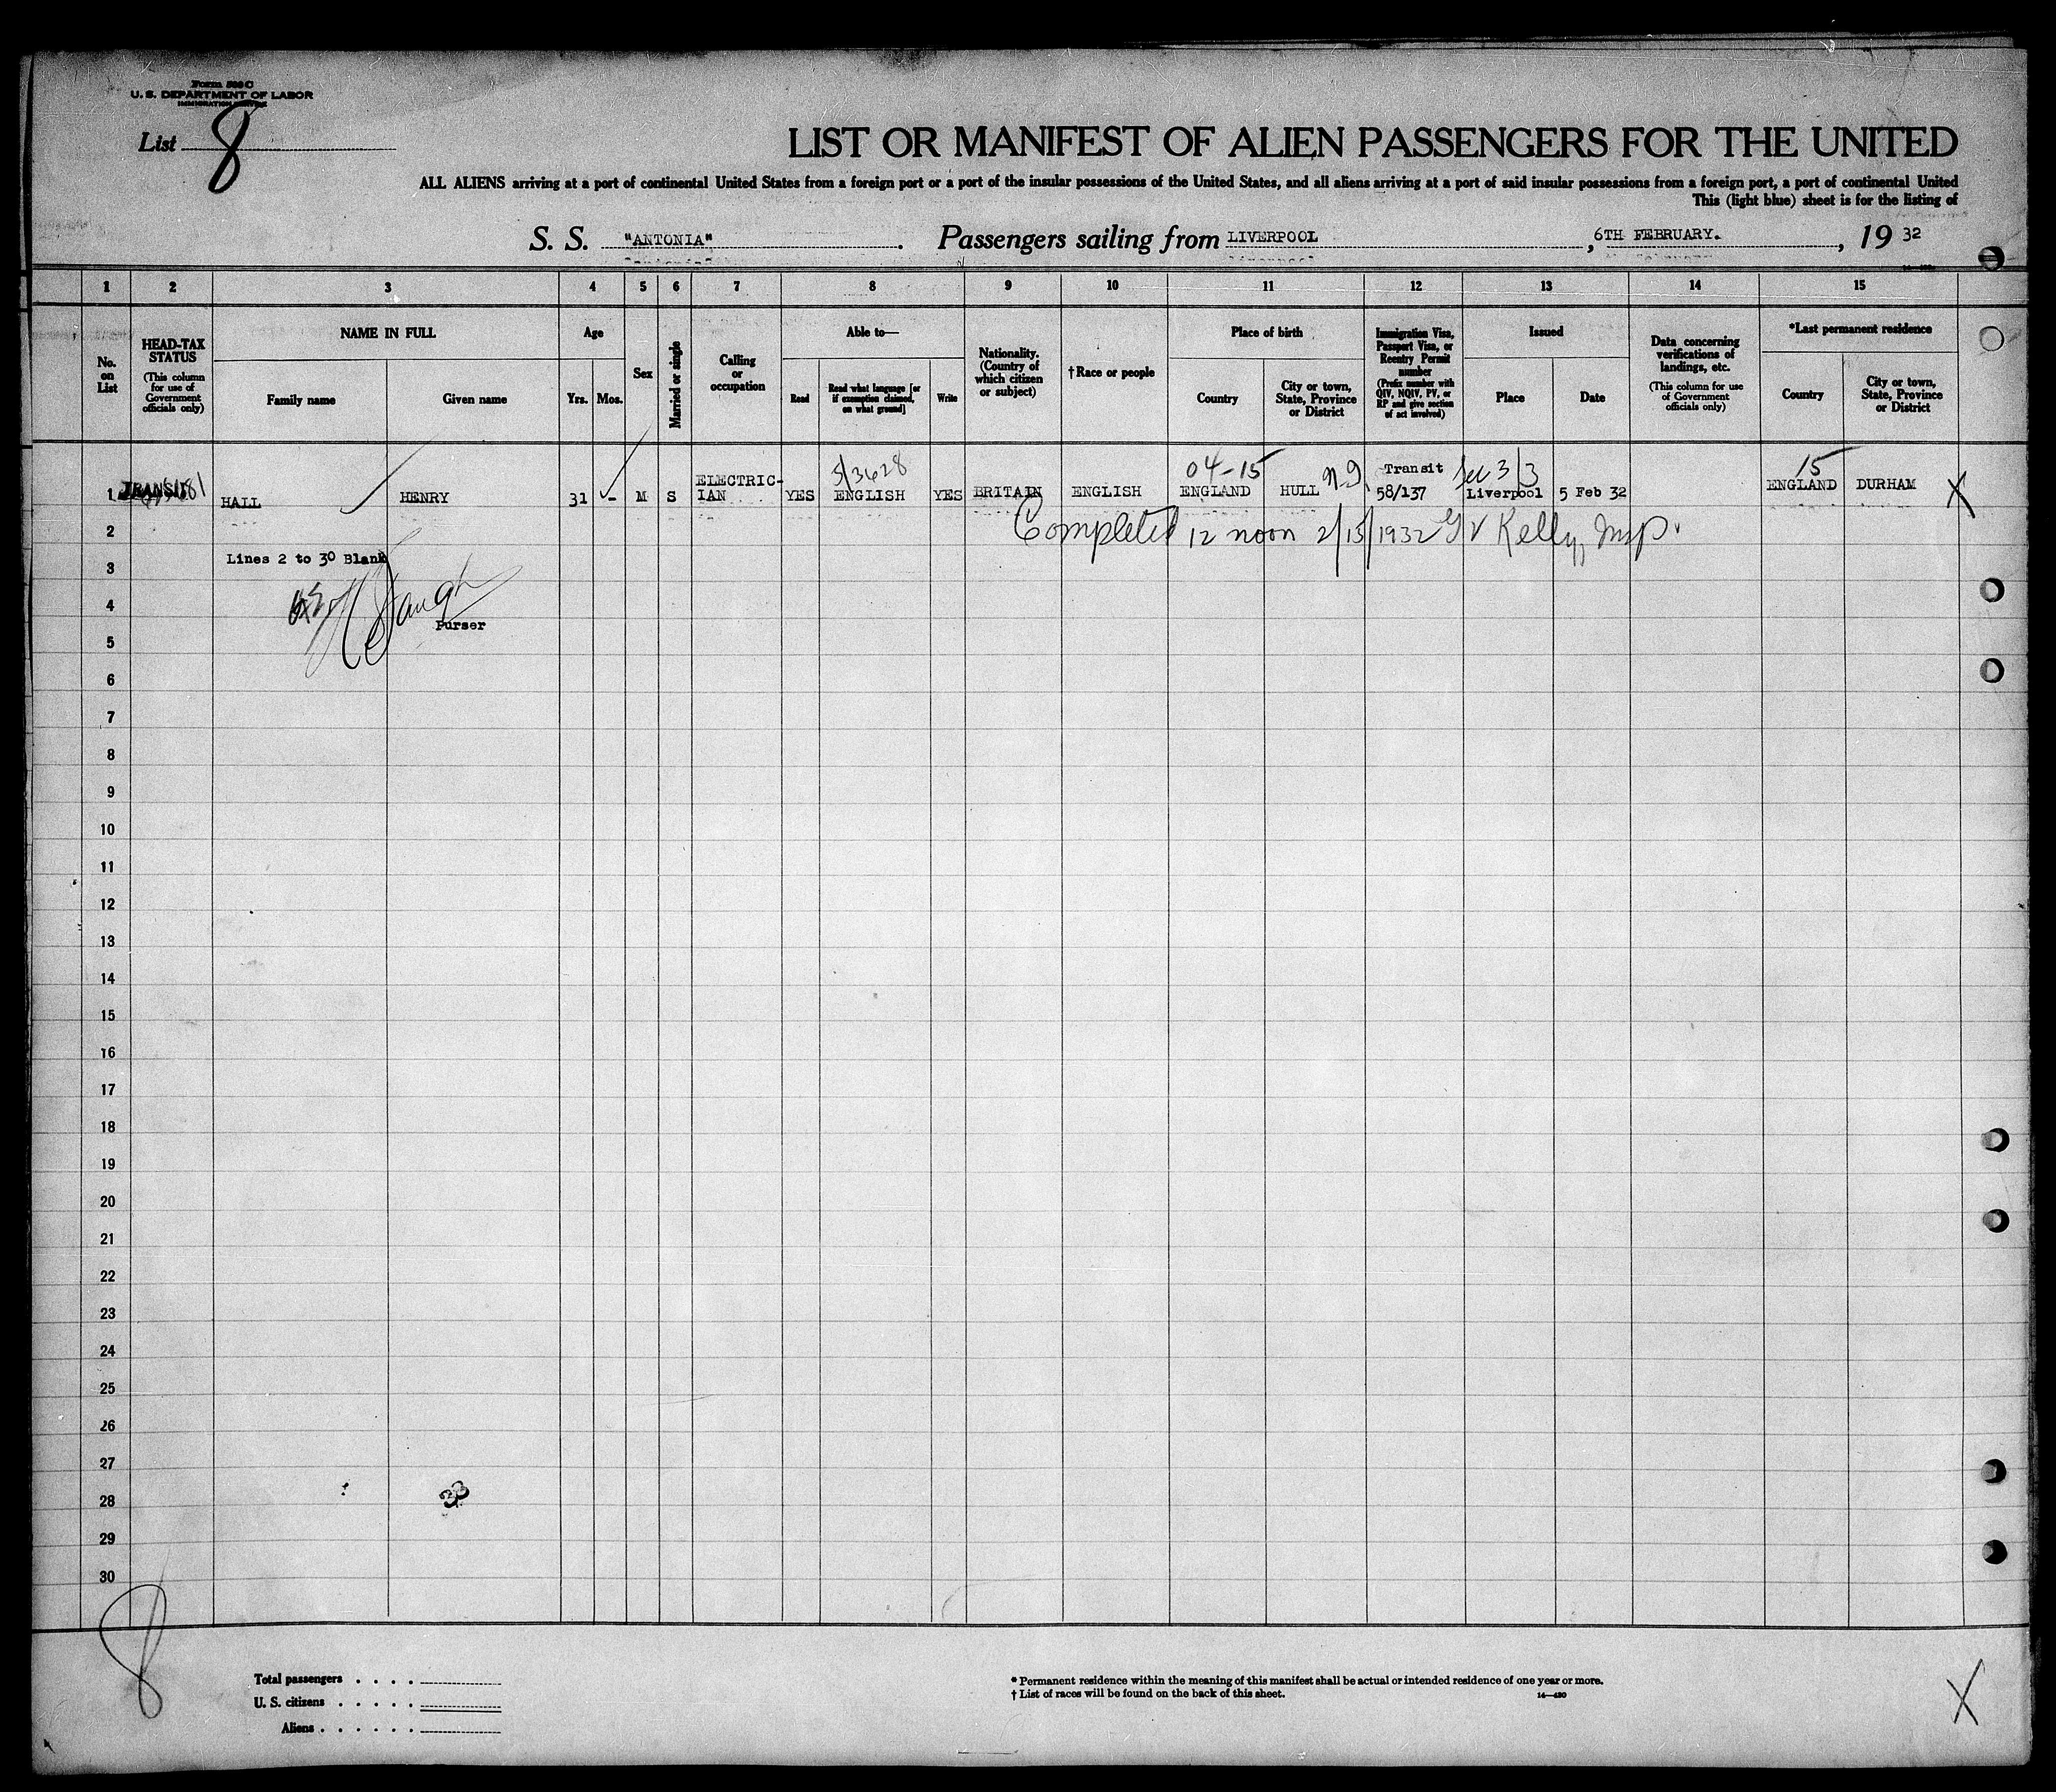 Form 500 C
U. S. DEPARTMENT OF LABOR
IMMIGRATION SERVICE
List 8
LIST OR MANIFEST OF ALIEN PASSENGERS FOR THE UNITED
ALL ALIENS arriving at a port of continental United States from a foreign port or a port of the insular possessions of the United States, and all aliens arriving at a port of said insular possessions from a foreign port, a port of continental United
This (light blue) sheet is for the listing of
S. S. "ANTONIA". Passengers sailing from LIVERPOOL, 6TH FEBRUARY., 19 32
1 2 3 4 5 6 7 8 9 10 11 12 13 14 15
No. on List
HEAD-TAX STATUS (This column for use of Government officials only)
NAME IN FULL
Family name
Given name
Age
Yrs. Mos.
Sex
Married or single
Calling or occupation
Able to—
Read
Read what language [or if exemption claimed, on what ground]
Write
Nationality. (Country of which citizen or subject)
†Race or people
Place of birth
Country
City or town, State, Province or District
Immigration Visa, Passport Visa, or Reentry Permit number (Prefix number with QIV, NQIV, PV, or RP and give section of act involved)
Issued
Place
Date
Data concerning verifications of landings, etc. (This column for use of Government officials only)
*Last permanent residence
Country
City or town, State, Province or District
5/3628 04-15 Transit Sec 3/3 15
1 TRANSIT HALL HENRY 31 - M S ELECTRIC-IAN YES ENGLISH YES BRITAIN ENGLISH ENGLAND HULL 58/137 Liverpool 5 Feb 32 ENGLAND DURHAM X
2 Completed 12 noon 2/15/1932 Kelly, Insp.
Lines 2 to 30 Blank
3
4
Purser
5
6
7
8
9
10
11
12
13
14
15
16
17
18
19
20
21
22
23
24
25
26
27
28 33
29
30
8
Total passengers . . . .
U. S. citizens . . . . .
Aliens . . . . . .
* Permanent residence within the meaning of this manifest shall be actual or intended residence of one year or more.
† List of races will be found on the back of this sheet. 14—480
X